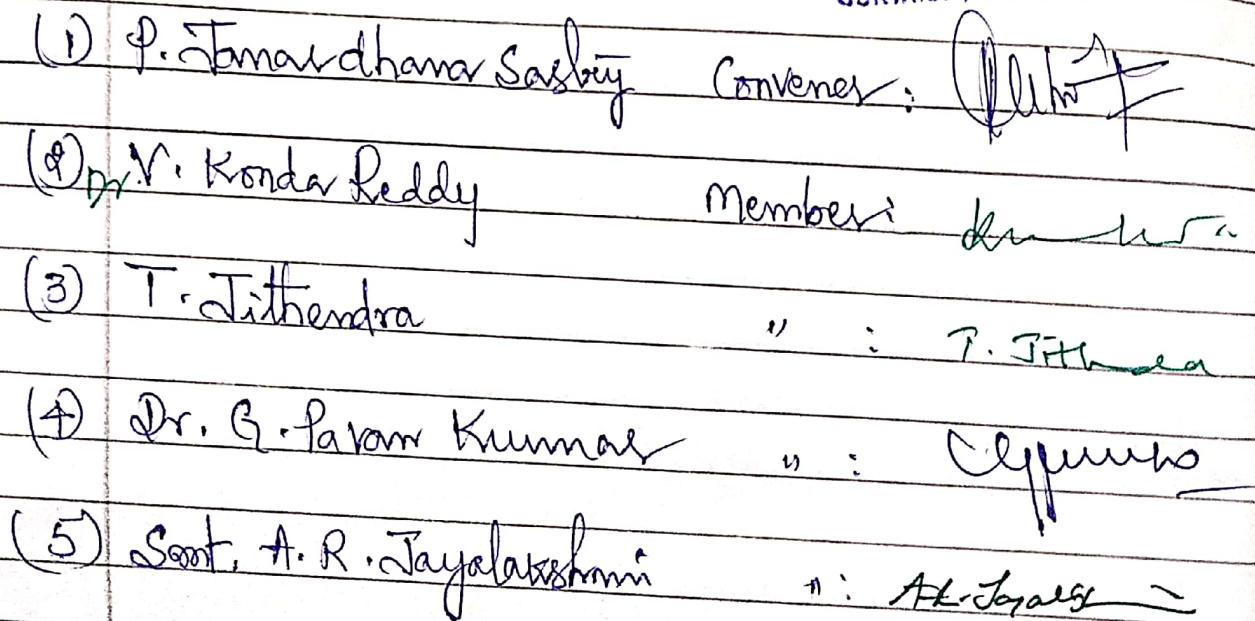 (1) P. Janardhana Sastry Convener :
(2) Dr V. Konda Reddy Member :
(3) T. Jithendra " : T. Jithendra
(4) Dr. G. Pavan Kumar " :
(5) Smt. A. R. Jayalakshmi " :